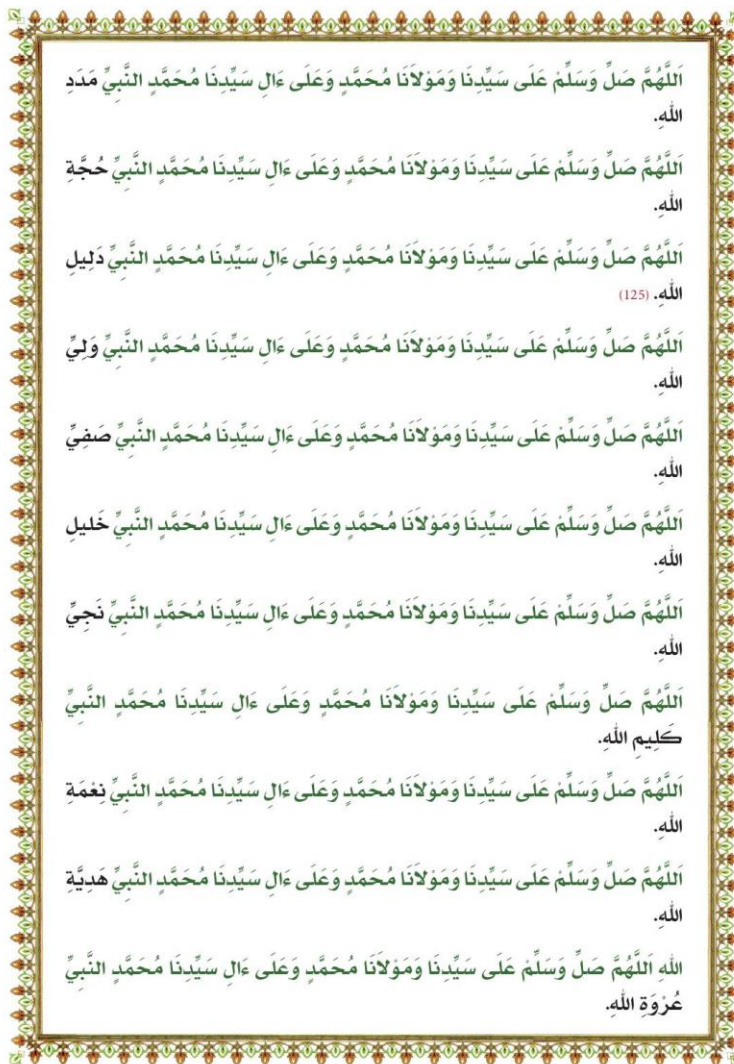 اَللَّهُمَّ صَلِّ وَسَلِّمْ عَلَى سَيِّدِنَا وَمَوْلَانَا مُحَمَّدٍ وَعَلَى ءَالِ سَيِّدِنَا مُحَمَّدٍ النَّبِيِّ مَدَدِ
اللهِ.
اَللَّهُمَّ صَلِّ وَسَلِّمْ عَلَى سَيِّدِنَا وَمَوْلَانَا مُحَمَّدٍ وَعَلَى ءَالِ سَيِّدِنَا مُحَمَّدٍ النَّبِيِّ حُجَّةِ
اللهِ.
اَللَّهُمَّ صَلِّ وَسَلِّمْ عَلَى سَيِّدِنَا وَمَوْلَانَا مُحَمَّدٍ وَعَلَى ءَالِ سَيِّدِنَا مُحَمَّدٍ النَّبِيِّ دَلِيلِ
اللهِ. (125)
اَللَّهُمَّ صَلِّ وَسَلِّمْ عَلَى سَيِّدِنَا وَمَوْلَانَا مُحَمَّدٍ وَعَلَى ءَالِ سَيِّدِنَا مُحَمَّدٍ النَّبِيِّ وَلِيِّ
اللهِ.
اَللَّهُمَّ صَلِّ وَسَلِّمْ عَلَى سَيِّدِنَا وَمَوْلَانَا مُحَمَّدٍ وَعَلَى ءَالِ سَيِّدِنَا مُحَمَّدٍ النَّبِيِّ صَفِيِّ
اللهِ.
اَللَّهُمَّ صَلِّ وَسَلِّمْ عَلَى سَيِّدِنَا وَمَوْلَانَا مُحَمَّدٍ وَعَلَى ءَالِ سَيِّدِنَا مُحَمَّدٍ النَّبِيِّ خَلِيلِ
اللهِ.
اَللَّهُمَّ صَلِّ وَسَلِّمْ عَلَى سَيِّدِنَا وَمَوْلَانَا مُحَمَّدٍ وَعَلَى ءَالِ سَيِّدِنَا مُحَمَّدٍ النَّبِيِّ نَجِيِّ
اللهِ.
اَللَّهُمَّ صَلِّ وَسَلِّمْ عَلَى سَيِّدِنَا وَمَوْلَانَا مُحَمَّدٍ وَعَلَى ءَالِ سَيِّدِنَا مُحَمَّدٍ النَّبِيِّ
كَلِيمِ اللهِ.
اَللَّهُمَّ صَلِّ وَسَلِّمْ عَلَى سَيِّدِنَا وَمَوْلَانَا مُحَمَّدٍ وَعَلَى ءَالِ سَيِّدِنَا مُحَمَّدٍ النَّبِيِّ نِعْمَةِ
اللهِ.
اَللَّهُمَّ صَلِّ وَسَلِّمْ عَلَى سَيِّدِنَا وَمَوْلَانَا مُحَمَّدٍ وَعَلَى ءَالِ سَيِّدِنَا مُحَمَّدٍ النَّبِيِّ هَدِيَّةِ
اللهِ.
اللهِ اَللَّهُمَّ صَلِّ وَسَلِّمْ عَلَى سَيِّدِنَا وَمَوْلَانَا مُحَمَّدٍ وَعَلَى ءَالِ سَيِّدِنَا مُحَمَّدٍ النَّبِيِّ
عُرْوَةِ اللهِ.